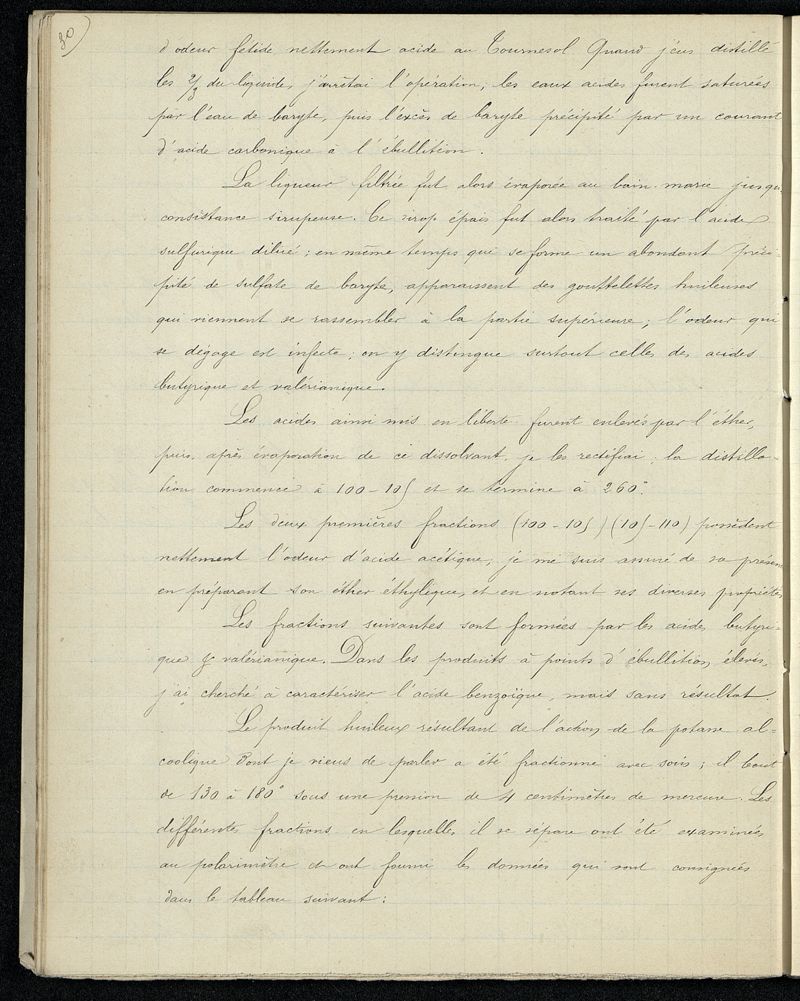 80)
d'odeur fetide nettement acide au Tournesol. Quand j'eus distillé
les 2/3 du liquide, j'arrêtai l'opération; les eaux acides furent saturées
par l'eau de baryte, puis l'excès de baryte précipité par un courant
d'acide carbonique à l'ébullition.
La liqueur filtrée fut alors évaporée au bain-marie jusqu'
consistance sirupeuse. Ce sirop épais fut alors traité par l'acide
sulfurique dilué; en même temps que se forme un abondant préci-
pité de sulfate de baryte, apparaissent des gouttelettes huileuses
qui viennent se rassembler à la partie supérieure; l'odeur qui
se dégage est infecte; on y distingue surtout celles des acides
butyrique et valérianique.
Les acides ainsi mis en liberté furent enlevés par l'éther,
puis, après évaporation de ce dissolvant, je les rectifiai; la distilla-
tion commence à 100-105 et se termine à 260°.
Les deux premières fractions (100-105) (105-110) possèdent
nettement l'odeur d'acide acétique; je me suis assuré de sa présen
en préparant son éther éthylique, et en notant ses diverses propriétés
Les fractions suivantes sont formées par les acides butyri-
que & valérianique. Dans les produits à points d'ébullition élevés,
j'ai cherché à caractériser l'acide benzoïque, mais sans résultat.
Le produit huileux résultant de l'action de la potasse al-
coolique dont je viens de parler a été fractionné avec soin; il bout
de 130 à 180° sous une pression de 4 centimètres de mercure. Les
différentes fractions en lesquelles il se sépare ont été examinées
au polarimètre et ont fourni les données qui sont consignées
dans le tableau suivant: